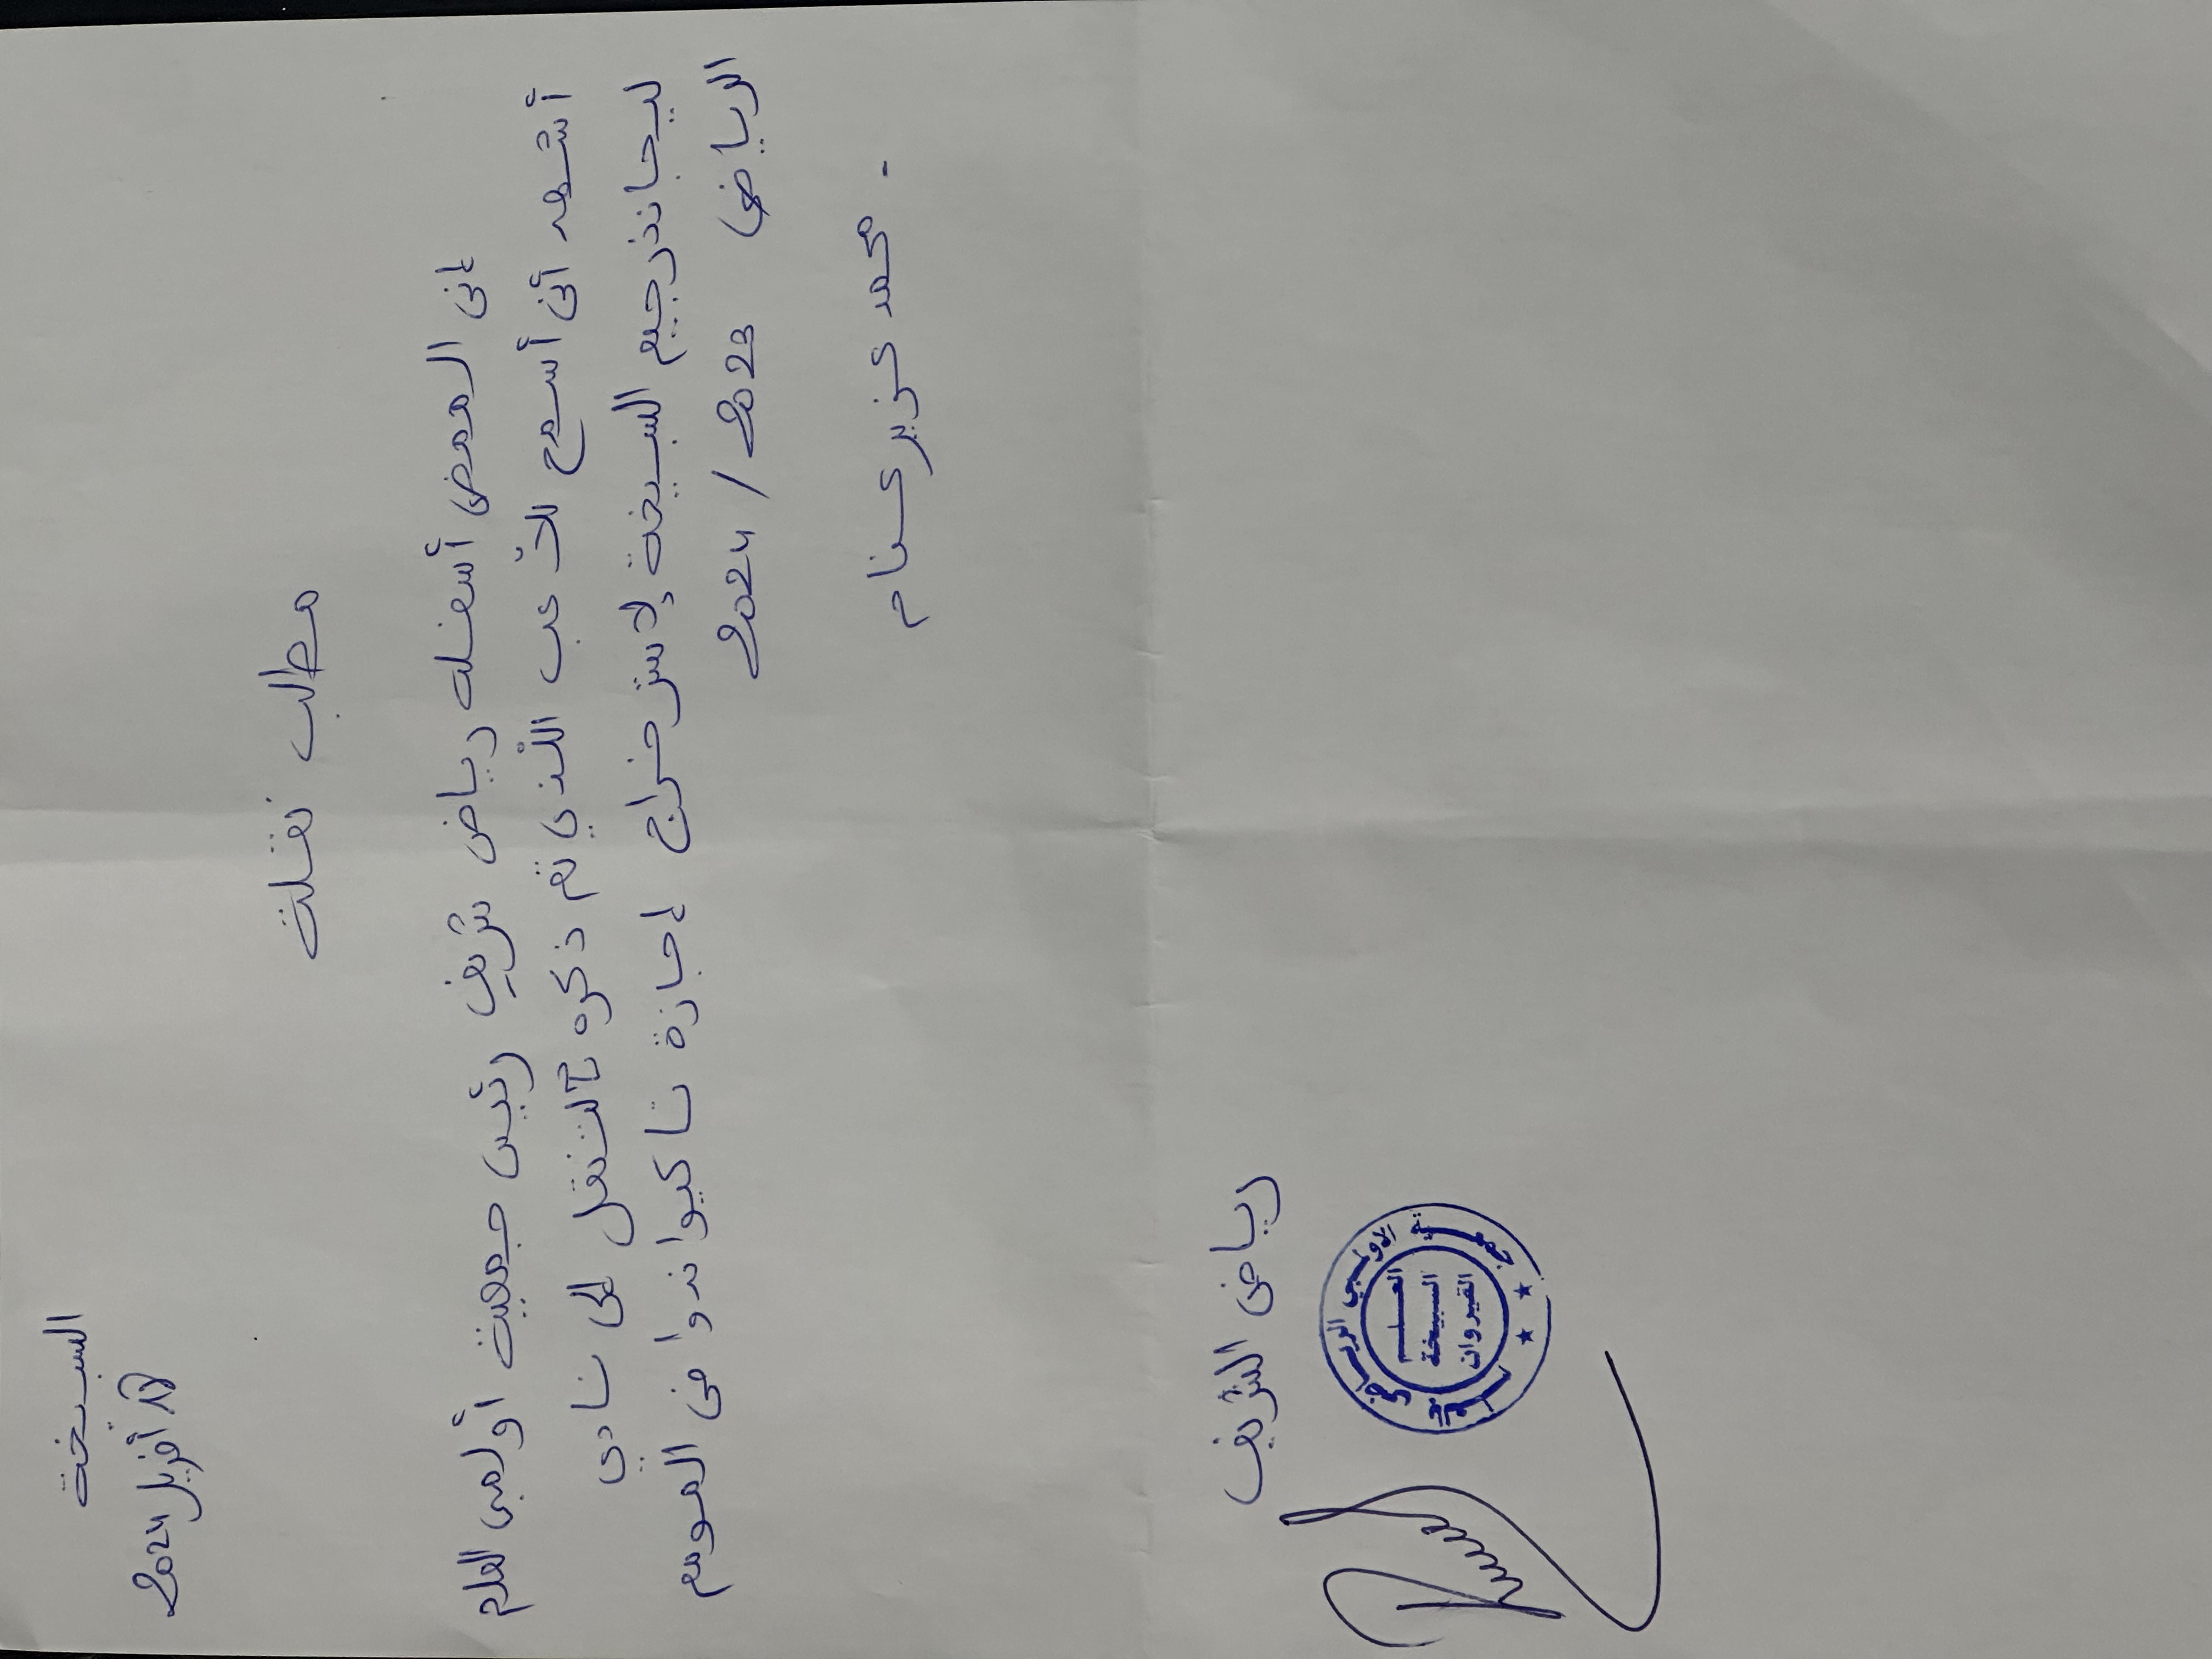 السبيخة
2024 أفريل
مطلب نقلة
إني الممضي أسفله رياض شريف رئيس جمعية أولمبي العلم
أشهد أني أسمح للاعب اللذي تم ذكره بالتنقل إلى نادي
ليجاندزجيم السبيخة لاستخراج إجازة تايكواندوا في الموسم
الرياضي 2023 / 2024
محمد عزيز عصام .
رياض الشريف
جمعية الاولمبي الرياضي
العلم
السبيخة
القيروان